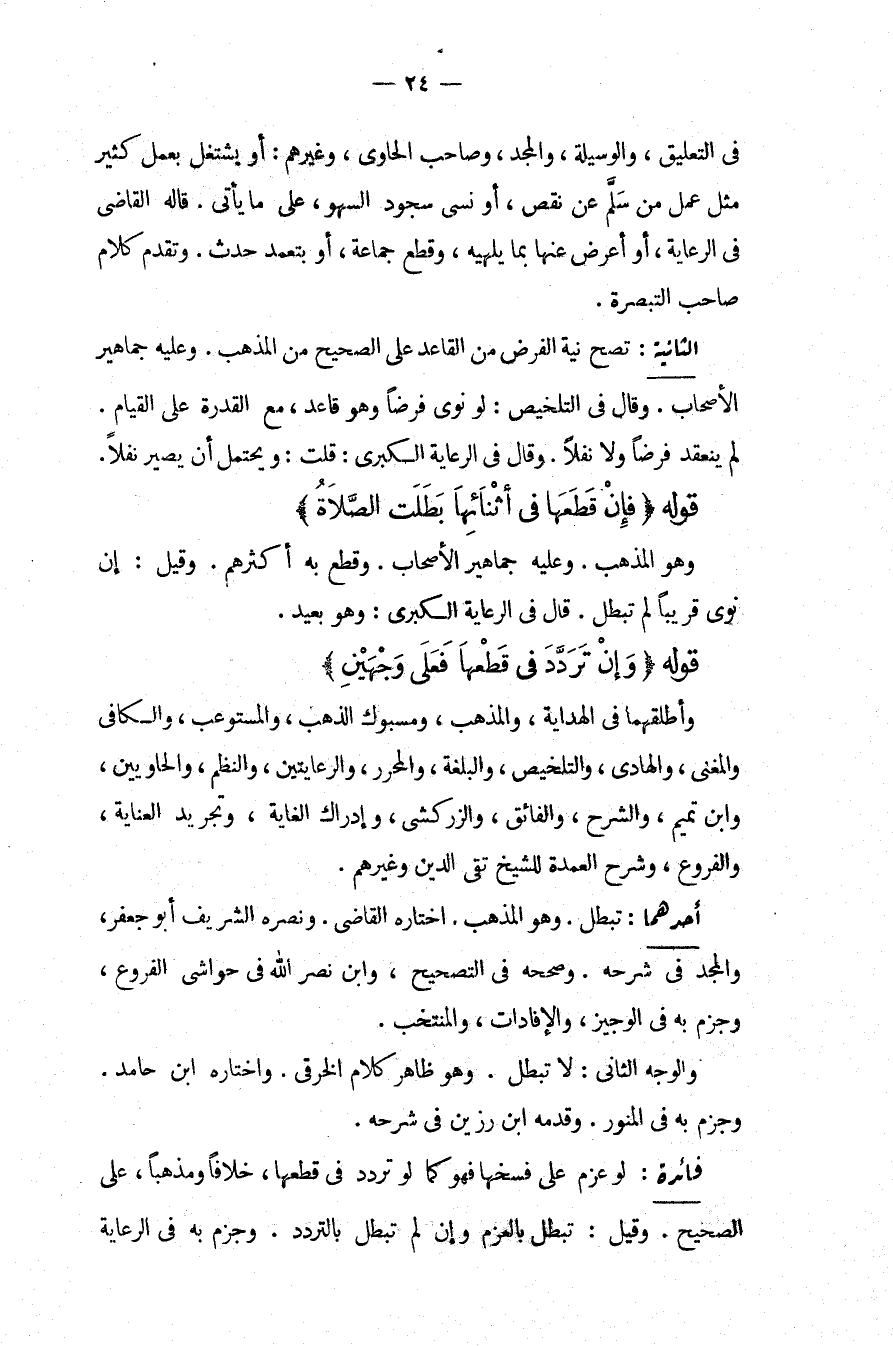 — ٢٤ —
فى التعليق ، والوسيلة ، والمجد ، وصاحب الحاوى ، وغيرهم : أو يشتغل بعمل كثير
مثل عمل من سَلَّم عن نقص ، أو نسى سجود السهو ، على ما يأتى . قاله القاضى
فى الرعاية ، أو أعرض عنها بما يلهيه ، وقطع جماعة ، أو بتعمد حدث . وتقدم كلام
صاحب التبصرة .
الثانية : تصح نية الفرض من القاعد على الصحيح من المذهب . وعليه جماهير
الأصحاب . وقال فى التلخيص : لو نوى فرضاً وهو قاعد ، مع القدرة على القيام .
لم ينعقد فرضاً ولا نفلاً . وقال فى الرعاية الكبرى : قلت : ويحتمل أن يصير نفلاً .
قوله ﴿ فَإِنْ قَطَعَهَا فى أَثْنَائِهَا بَطَلَت الصَّلَاةُ ﴾
وهو المذهب . وعليه جماهير الأصحاب . وقطع به أكثرهم . وقيل : إن
نوى قريباً لم تبطل . قال فى الرعاية الكبرى : وهو بعيد .
قوله ﴿ وَإِنْ تَرَدَّدَ فى قَطْعِهَا فَعَلَى وَجْهَيْنِ ﴾
وأطلقهما فى الهداية ، والمذهب ، ومسبوك الذهب ، والمستوعب ، والكافى
والمغنى ، والهادى ، والتلخيص ، والبلغة ، والمحرر ، والرعايتين ، والنظم ، والحاويين ،
وابن تميم ، والشرح ، والفائق ، والزركشى ، وإدراك الغاية ، وتجريد العناية ،
والفروع ، وشرح العمدة للشيخ تقى الدين وغيرهم .
أحدهما : تبطل . وهو المذهب . اختاره القاضى . ونصره الشريف أبو جعفر ،
والمجد فى شرحه . وصححه فى التصحيح ، وابن نصر الله فى حواشى الفروع ،
وجزم به فى الوجيز ، والإفادات ، والمنتخب .
والوجه الثانى : لا تبطل . وهو ظاهر كلام الخرقى . واختاره ابن حامد .
وجزم به فى المنور . وقدمه ابن رزين فى شرحه .
فائدة : لو عزم على فسخها فهو كما لو تردد فى قطعها ، خلافاً ومذهباً ، على
الصحيح . وقيل : تبطل بالعزم وإن لم تبطل بالتردد . وجزم به فى الرعاية